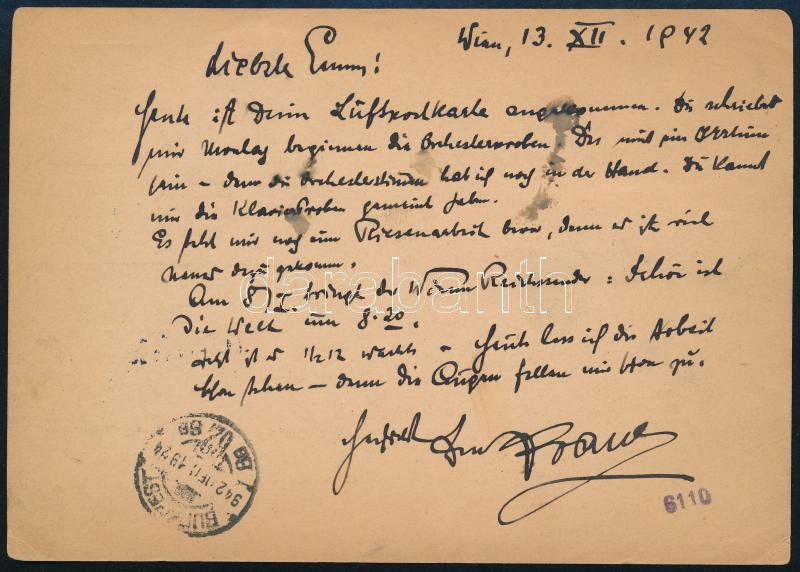 Wien, 13. XII. 1942
Liebste Emmy!
Heute ist Deine Luftpostkarte angekommen. Du schriebst
mir Montag beginnen die Orchesterproben. Das muss ein Irrtum
sein – denn die Orchesterstimmen hab ich noch in der Hand. Du kannst
nur die Klavierproben gemeint haben.
Es steht mir noch eine Riesenarbeit bevor, denn es ist viel
neues dazugekommen.
Am 8/I. bringt der Wiener Reichssender: Schön ist
die Welt um 8.20.
Jetzt ist es 1/2 12 nachts – Heute lass ich die Arbeit
schon stehen – denn die Augen fallen mir schon zu.
Herzlichst
BUDAPEST
942 DEC 19 24
6110
darabanth